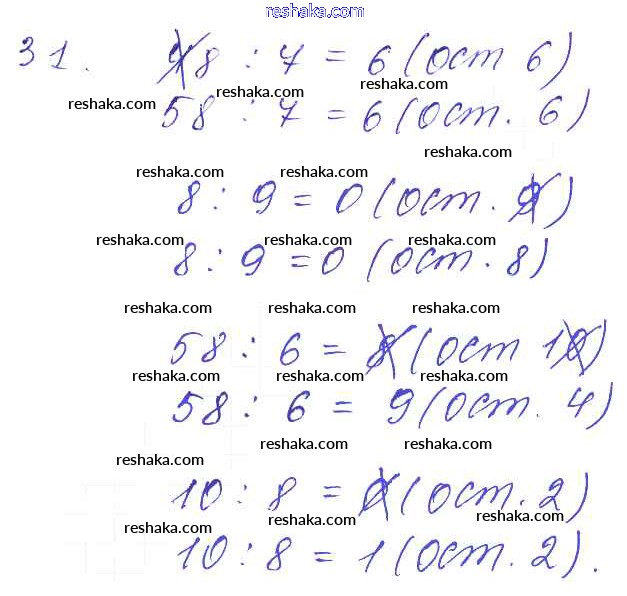 reshaka.com
31. 98 : 7 = 6 (ост 6)
reshaka.com reshaka.com reshaka.com
58 : 7 = 6 (ост. 6)
reshaka.com
reshaka.com reshaka.com
8 : 9 = 0 (ост. 9)
reshaka.com reshaka.com reshaka.com
8 : 9 = 0 (ост. 8)
reshaka.com reshaka.com reshaka.com
58 : 6 = 8 (ост 10)
reshaka.com reshaka.com reshaka.com
58 : 6 = 9 (ост. 4)
reshaka.com reshaka.com
reshaka.com
10 : 8 = 0 (ост. 2)
reshaka.com reshaka.com reshaka.com
10 : 8 = 1 (ост. 2).